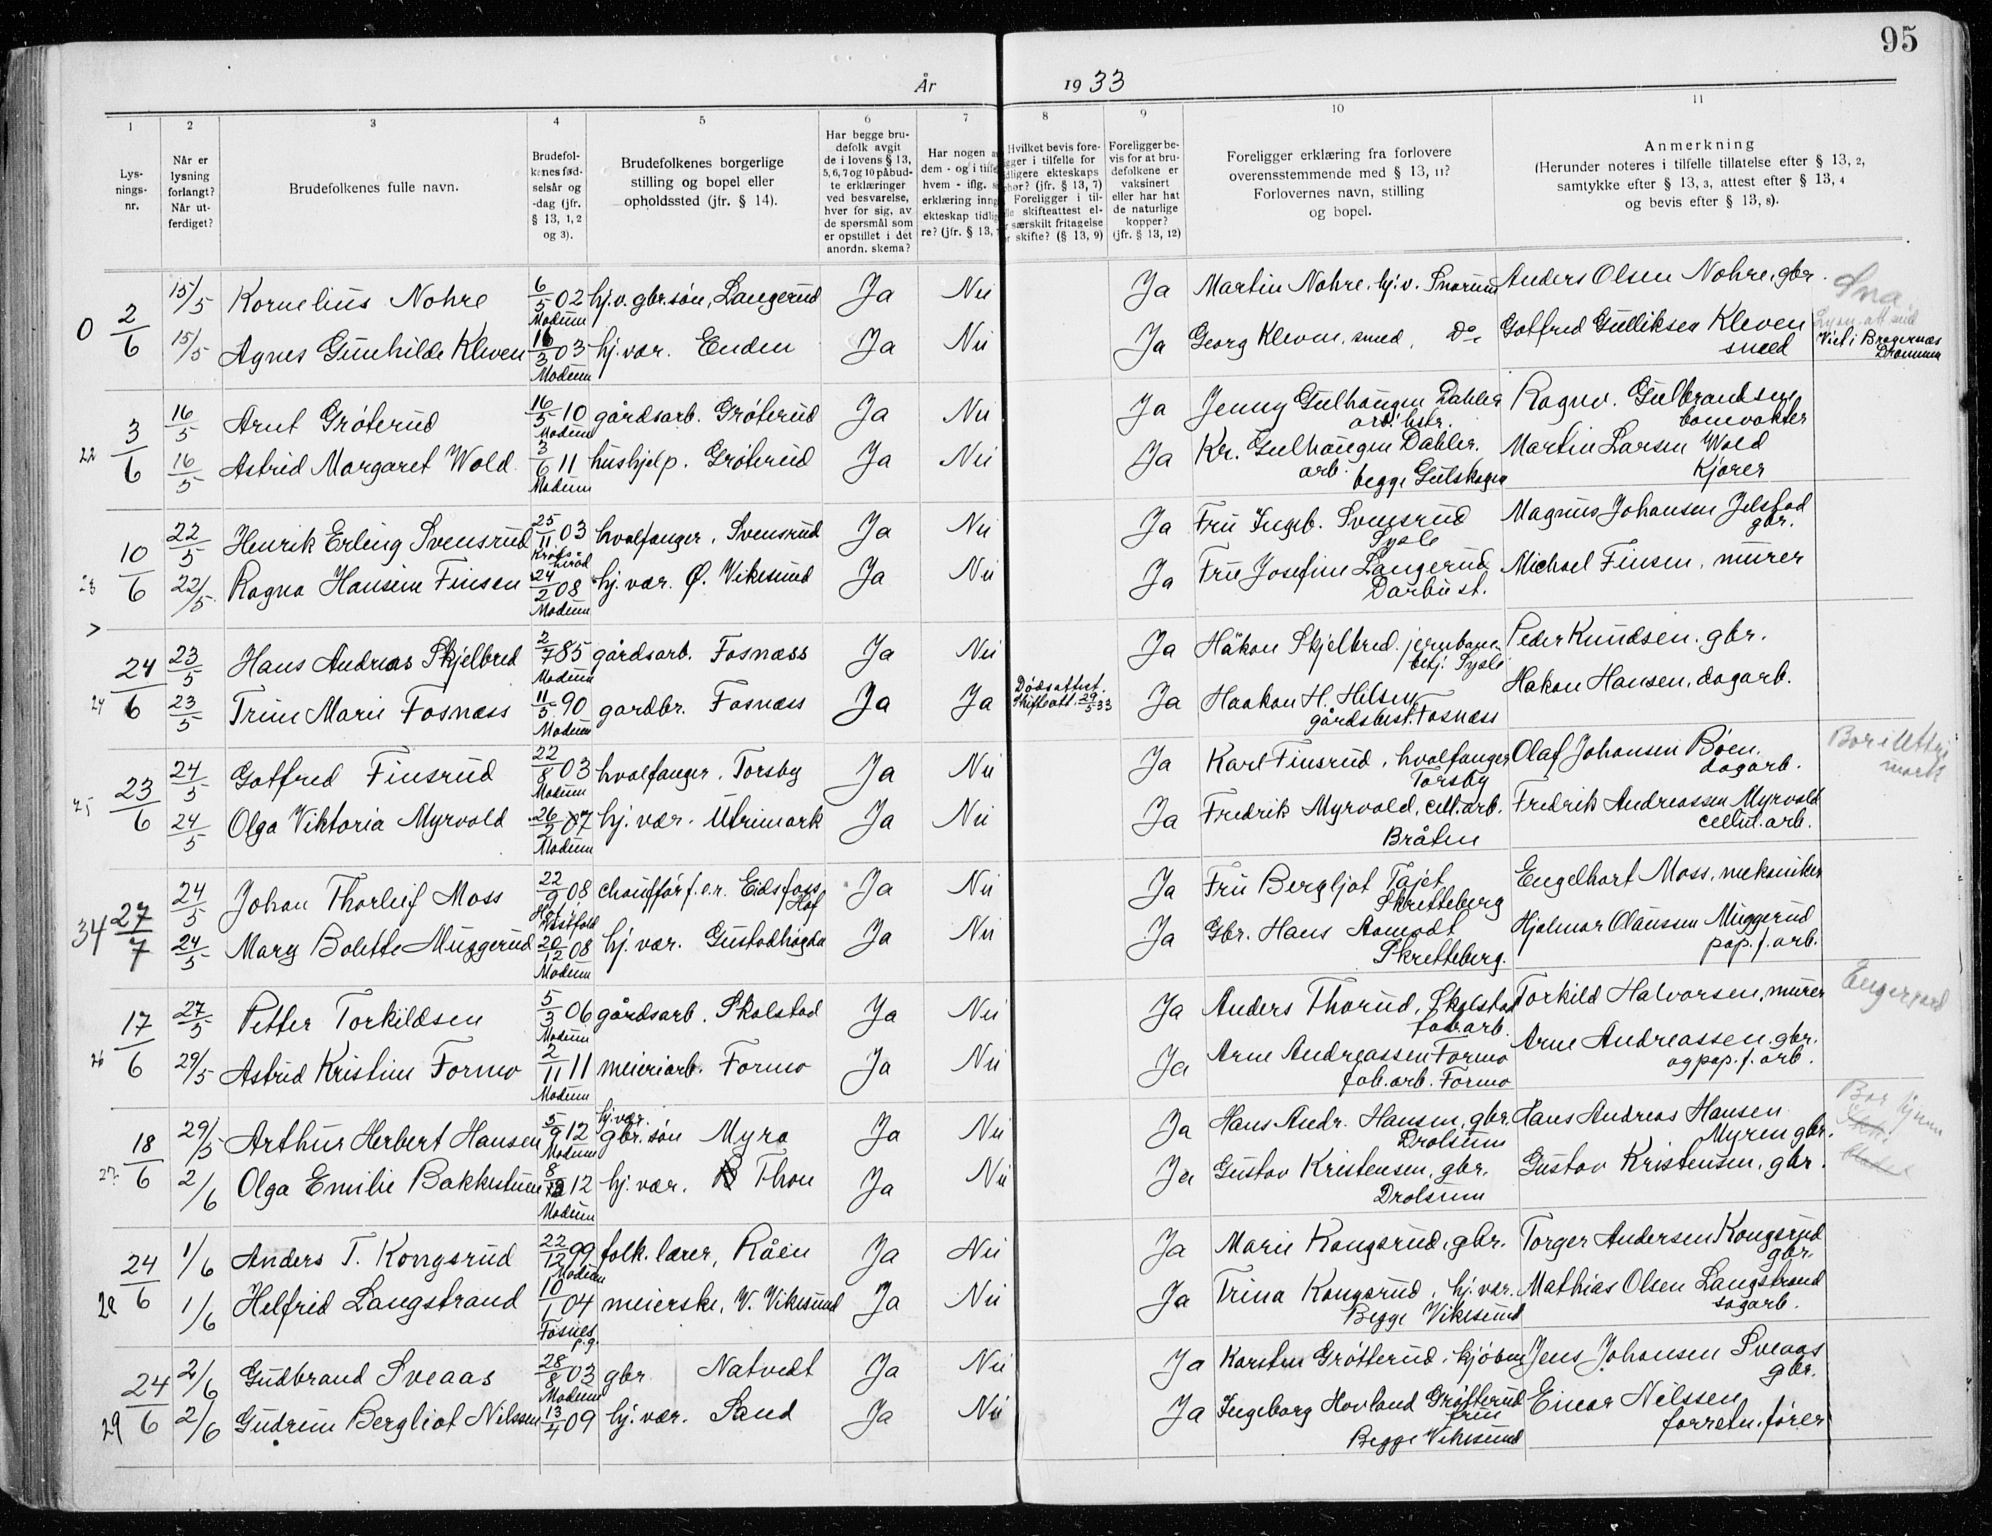 95
År 1933
1 2 3 4 5 6 7 8 9 10 11
Lys-
nings-
nr.
Når er
lysning
forlangt?
Når ut-
ferdiget?
Brudefolkenes fulle navn.
Brudefol-
kenes fød-
selsår og
-dag (jfr.
§ 13, 1, 2
og 3).
Brudefolkenes borgerlige
stilling og bopel eller
opholdssted (jfr. § 14).
Har begge bru-
defolk avgit
de i lovens § 13,
5, 6, 7 og 10 påbud-
te erklæringer
ved besvarelse,
hver for sig, av
de spørsmål som
er opstillet i det
anordn. skema?
Har nogen a
dem - og i tilfe
hvem - iflg.
erklæring inng
ekteskap tidlig
re? (jfr. § 13,
Hvilket bevis fore-
gger i tilfelle for
dligere ekteskaps
phør? (jfr. § 13, 7)
Foreligger i til-
le skifteattest el-
r særskilt fritagelse
r skifte? (§ 13, 9)
Foreligger be-
vis for at bru-
defolkene er
vaksinert
eller har hat
de naturlige
kopper?
(jfr. § 13, 12)
Foreligger erklæring fra forlovere
overensstemmende med § 13, 11?
Forlovernes navn, stilling
og bopel.
Anmerkning
(Herunder noteres i tilfelle tillatelse efter § 13, 2,
samtykke efter § 13, 3, attest efter § 13, 4
og bevis efter § 13, 8).
0 2/6 15/5 Kornelius Nohre 6/5 02 Modum hj.v. gbr.søn, Langerud Ja Nei Ja Martin Nohre, hj.v. Snarum Anders Olsen Nohre, gbr. Sna.
15/5 Agnes Gunhilde Kleven 16/3 03 Modum hj. vær. Enden Ja Nei Ja Georg Kleven, smed, Do Gotfred Gulliksen Kleven
smed
Viet i Bragernæs
Drammen
22 3/6 16/5 Arnt Grøterud 16/5 10 Modum gårdsarb. Grøterud Ja Nei Ja Jenny Gulhaugen Dahler
arb. hstr.
Ragnv. Gulbrandsen
banevokter
16/5 Astrid Margaret Wold 3/6 11 Modum hushjelp. Grøterud Ja Nei Ja Kr. Gulhaugen Dahler.
arb. begge Gulskogen
Martin Larsen Wold
Kjører
23 10/6 22/5 Henrik Erling Svensrud 25/11 03 Krøds-
herad hvalfanger, Svensrud Ja Nei Ja Fru Ingeb. Svensrud
Sysle
Magnus Johansen Jelstad
gbr.
22/5 Ragna Hansine Finsen 24/2 08 Modum hj. vær. Ø. Vikesund Ja Nei Ja Fru Josefine Langerud
Darbu st.
Michael Finsen, murer
>
24 24/6 23/5 Hans Andreas Skjelbred 2/7 85 Modum gårdsarb. Fosnæss Ja Nei Ja Håkon Skjelbred. jernbane-
betj. Sysle
Peder Knudsen. gbr.
23/5 Trine Marie Fosnæss 11/5 90 Modum gardbr. Fosnæss Ja Ja Dødsattest.
Skifteatt. 29/5 33 Ja Haakon H. Hilsen,
gårdsbest. Fosnæss
Hakon Hansen, dagarb.
25 23/6 24/5 Gotfred Finsrud 22/8 03 Modum hvalfanger. Torsby Ja Nei Ja Karl Finsrud, hvalfanger
Torsby
Olaf Johansen Bøen.
dagarb.
Bor i Uttri
mark
24/5 Olga Viktoria Myrvold 26/2 07 Modum hj. vær. Utrimark Ja Nei Ja Fredrik Myrvold, cell. arb.
Bråten
Fredrik Andreassen Myrvold
cellul. arb.
34 27/7 24/5 Johan Thorleif Moss 22/9 08 Hof
Vestfold chauffør f.o.r. Eidsfoss
Hof Ja Nei Ja Fru Bergljot Tajet
Skretteberg
Engelhart Moss, mekaniker
24/5 Mary Bolette Muggerud 20/12 08 Modum hj. vær. Gustadhøgda Ja Nei Ja Gbr. Hans Aamodt
Skretteberg.
Hjalmar Olaussen Muggerud
pap. f. arb.
26 17/6 27/5 Petter Torkildsen 5/3 06 Modum gårdsarb. Skalstad Ja Nei Ja Anders Thorud, Skalstad
fab. arb.
Torkild Halvorsen, murer
29/5 Astrid Kristine Formo 2/11 11 Modum meieriarb. Formo Ja Nei Ja Arne Andreassen Formo
fab. arb. Formo
Arne Andreassen, gbr.
og pap. f. arb.
27 18/6 29/5 Arthur Herbert Hansen 5/9 12 Modum hj. vær.
gbr. søn Myra Ja Nei Ja Hans Andr. Hansen, gbr.
Drolsum
Hans Andreas Hansen
Myren gbr.
Bor
2/6 Olga Emilie Bakkestuen 8/12 12 Modum hj. vær. Thon Ja Nei Ja Gustav Kristensen, gbr.
Drolsum
Gustav Kristensen, gbr.
28 24/6 1/6 Anders T. Kongsrud 22/12 99 Modum folk. lærer, Råen Ja Nei Ja Marie Kongsrud, gbr. Torger Andersen Kongsrud
gbr.
1/6 Helfrid Langstrand 10/1 04 Fosnes
p.g. meierske, V. Vikesund Ja Nei Ja Trina Kongsrud, hj. vær.
Begge Vikesund
Mathias Olsen Langstrand
sagarb.
29 24/6 2/6 Gudbrand Sveaas 28/8 03 Modum gbr Natvedt Ja Nei Ja Karsten Grøtterud, kjøbm Jens Johansen Sveaas
gbr.
2/6 Gudrun Bergliot Nilssen 13/4 09 hj. vær. Sand Ja Nei Ja Ingeborg Hovland Grøtterud
frue
Begge Vikesund
Einar Nilssen,
forretn. fører